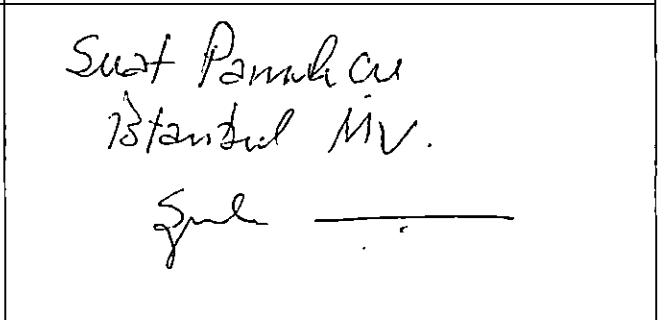 Suat Pamukcu
İstanbul MV.